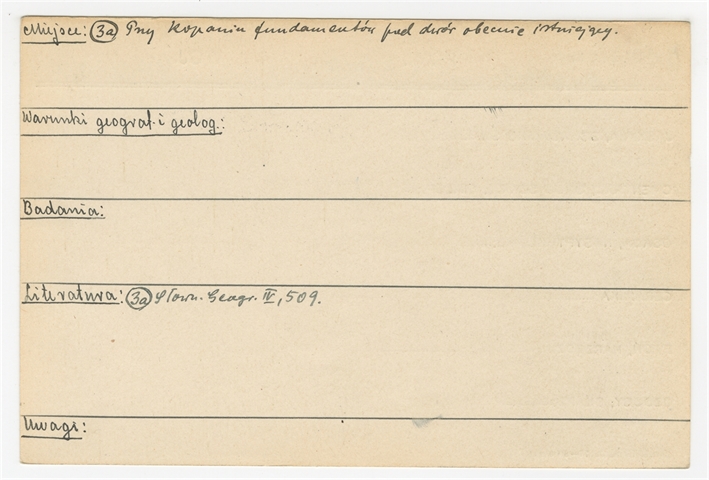 Miejsce: 3a Przy kopaniu fundamentów pod dwór obecnie istniejący.
Warunki geograf. i geolog.:
Badania:
Literatura: 3a Słown. Geogr. IV, 509.
Uwagi: